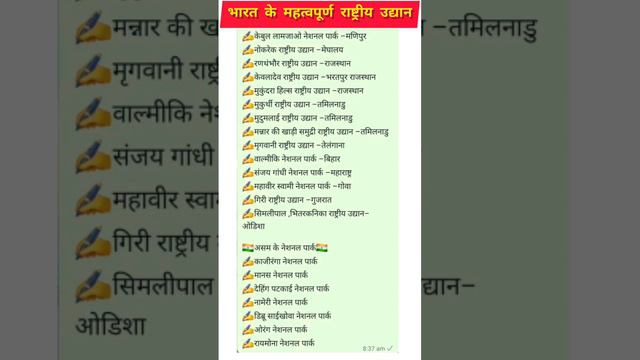 भारत के महत्वपूर्ण राष्ट्रीय उद्यान
✍️केबुल लामजाओ नेशनल पार्क –मणिपुर
✍️नोकरेक राष्ट्रीय उद्यान –मेघालय
✍️रणथंभौर राष्ट्रीय उद्यान –राजस्थान
✍️केवलादेव राष्ट्रीय उद्यान –भरतपुर राजस्थान
✍️मुकुंदरा हिल्स राष्ट्रीय उद्यान –राजस्थान
✍️मुकुर्थी राष्ट्रीय उद्यान –तमिलनाडु
✍️मुदुमलाई राष्ट्रीय उद्यान –तमिलनाडु
✍️मन्नार की खाड़ी समुद्री राष्ट्रीय उद्यान –तमिलनाडु
✍️मृगवानी राष्ट्रीय उद्यान –तेलंगाना
✍️वाल्मीकि नेशनल पार्क –बिहार
✍️संजय गांधी नेशनल पार्क –महाराष्ट्र
✍️महावीर स्वामी नेशनल पार्क –गोवा
✍️गिरी राष्ट्रीय उद्यान –गुजरात
✍️सिमलीपाल ,भितरकनिका राष्ट्रीय उद्यान–
ओडिशा
🇮🇳असम के नेशनल पार्क🇮🇳
✍️काजीरंगा नेशनल पार्क
✍️मानस नेशनल पार्क
✍️देहिंग पटकाई नेशनल पार्क
✍️नामेरी नेशनल पार्क
✍️डिब्रू साईखोवा नेशनल पार्क
✍️ओरंग नेशनल पार्क
✍️रायमोना नेशनल पार्क
8:37 am ✓
✍️मन्नार की खा
✍️मृगवानी राष्ट्री
✍️वाल्मीकि ने
✍️संजय गांधी
✍️महावीर स्वा
✍️गिरी राष्ट्रीय
✍️सिमलीपाल
ओडिशा
–तमिलनाडु
उद्यान–